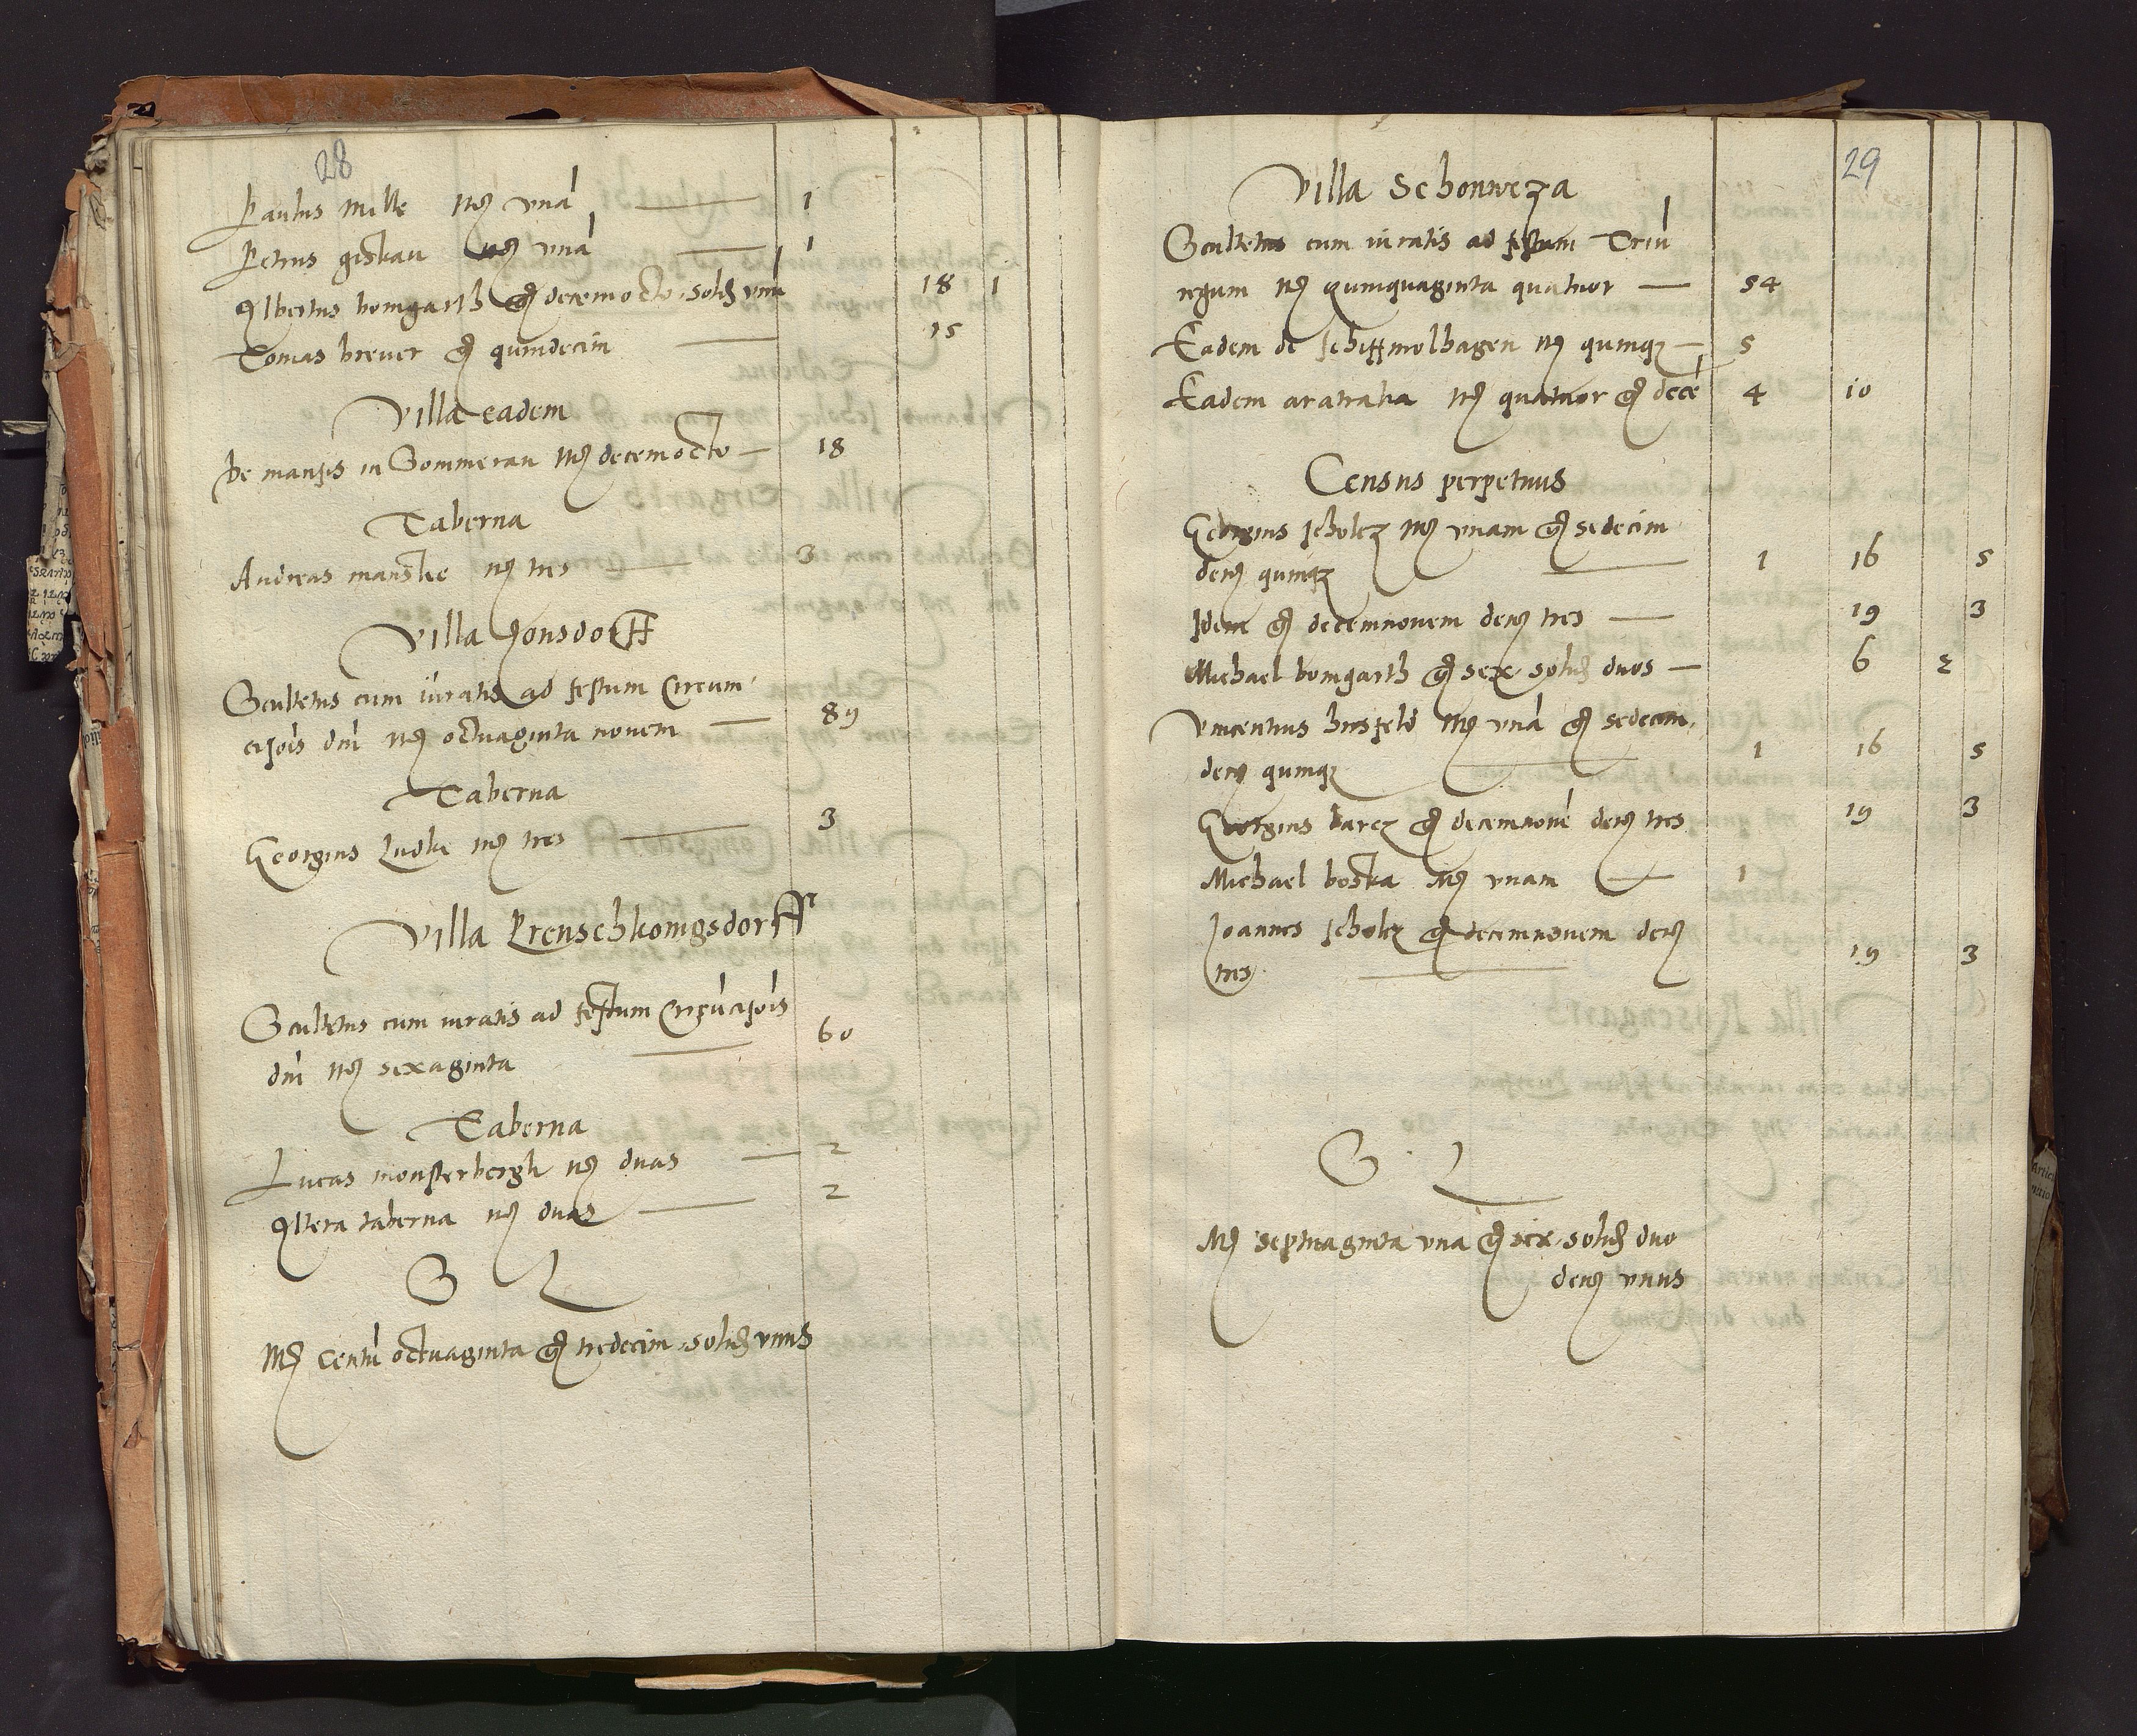 28
Paulus Mille mrꝭ vnā — 1
Petrus giskau mrꝭ vnā — 1
Albertus bomgarth gꝭ decemocto solꝭ vnū 18 1
Tomas brever gꝭ quindecim — 15
Villa eadem
De mansis in Sommerau mrꝭ decemocto — 18
Taberna
Andreas manske mrꝭ tres — 3
Villa Jonsdorff
Scultetus cum iuratis ad festum Circum
cisiōis dn̄i mrꝭ octuaginta novem — 89
Taberna
Georgius Ludke mrꝭ tres — 3
Villa Preuschkonigsdorff
Scultetus cum iuratis ad festum Circūcisiōis
dn̄i mrꝭ sexaginta — 60
Taberna
Lucas monsterbergk mrꝭ duas — 2
Altera taberna mrꝭ duas — 2
S L
Mrꝭ Centū octuaginta gꝭ tredecim solꝭ vnus
29
Villa Schonweza
Scultetus cum iuratis ad festum Triū
regum mrꝭ quinquaginta quatuor — 54
Eadem de schiffmolhagen mrꝭ quinqꝫ — 5
Eadem aratralia mrꝭ quatuor gꝭ decē 4 10
Census perpetuus
Georgius scholcz mrꝭ vnam gꝭ sedecim
denꝭ quinqꝫ — 1 16 5
Idem gꝭ decemnovem denꝭ tres — 19 3
Michael bomgarth gꝭ sex solꝭ duos — 6 2
Vincentius hirsfeld mrꝭ vnā gꝭ sedecim
denꝭ quinqꝫ — 1 16 5
Georgius barcz gꝭ decemnovē denꝭ tres 19 3
Michael boska mrꝭ vnam — 1
Joannes scholcz gꝭ decemnovem denꝭ
tres — 19 3
S L
Mrꝭ septuaginta vna gꝭ sex solꝭ duo
denꝭ vnus